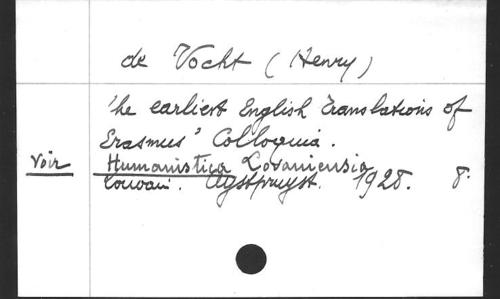 de Vocht (Henry)
'he earliest English Translations of
Erasmus' Colloquia.
voir Humanistica Lovaniensia
Louvain. Uystpruyst. 1928. 8.